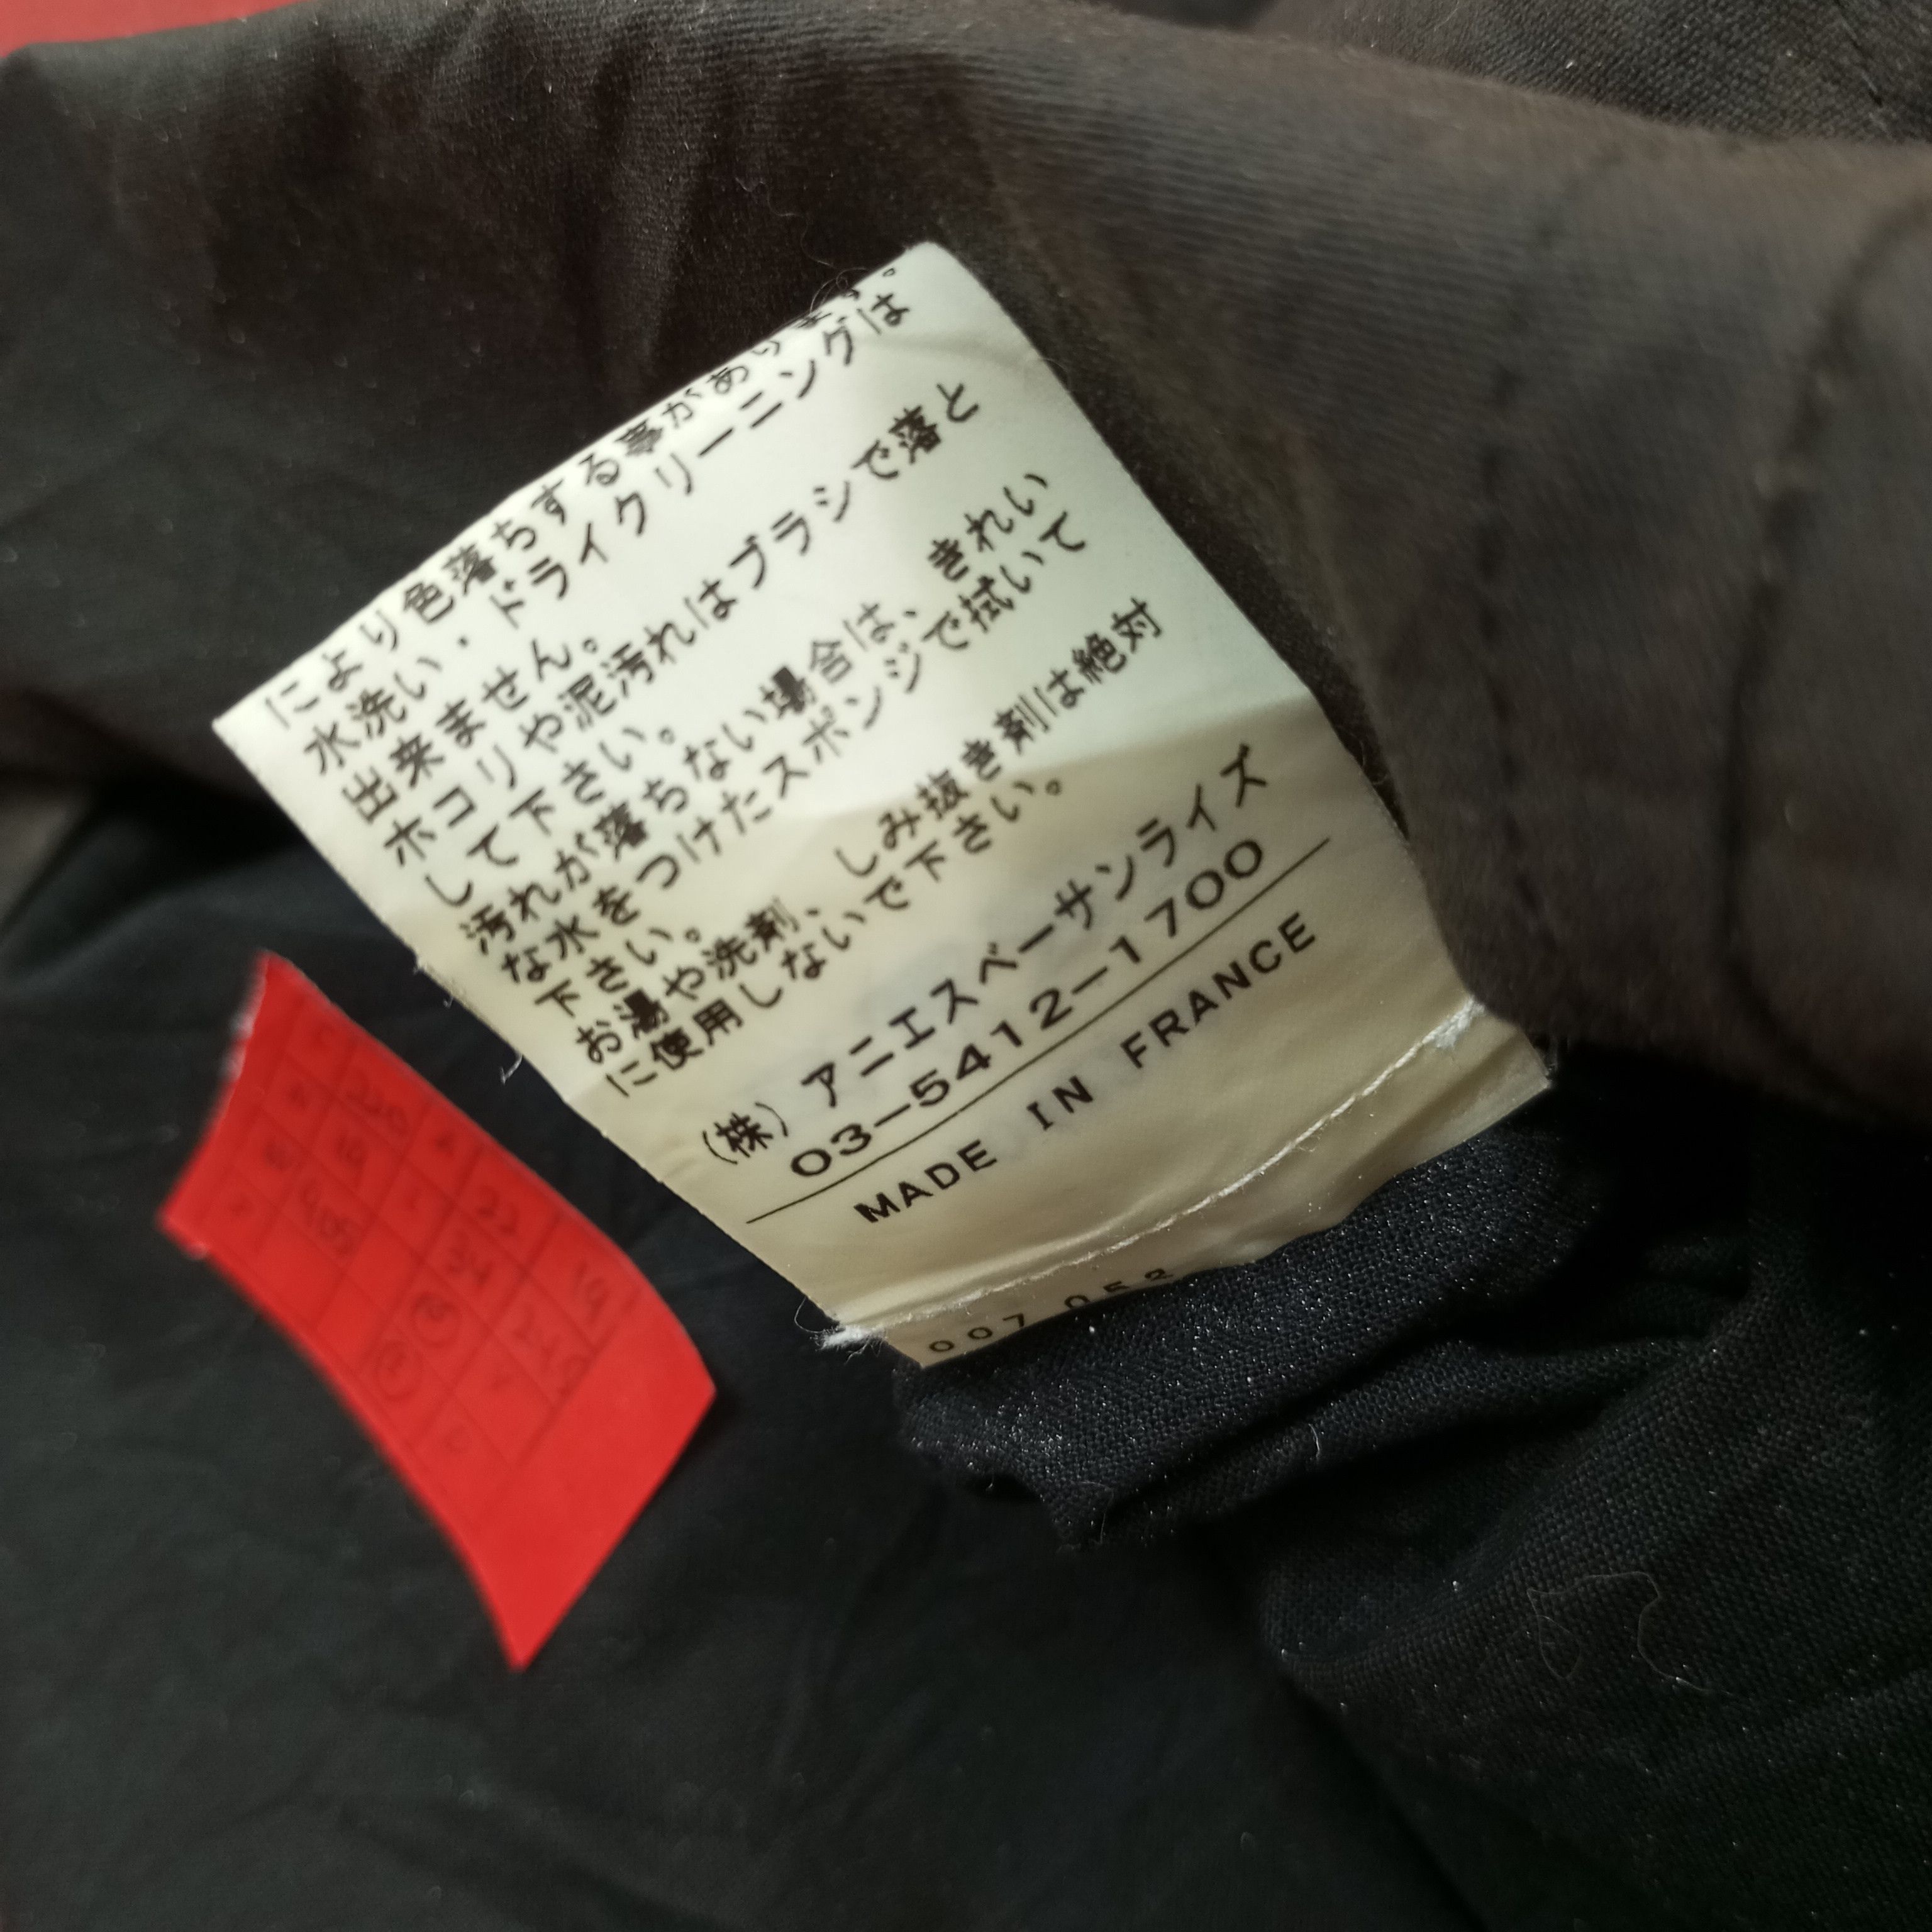 により色落ちする事があります。
水洗い・ドライクリーニングは
出来ません。
ホコリや泥汚れはブラシで落と
して下さい。
汚れが落ちない場合は、きれい
な水をつけたスポンジで拭いて
下さい。
お湯や洗剤、しみ抜き剤は絶対
に使用しないで下さい。
(株)アニエスベーサンライズ
03-5412-1700
MADE IN FRANCE
007 052